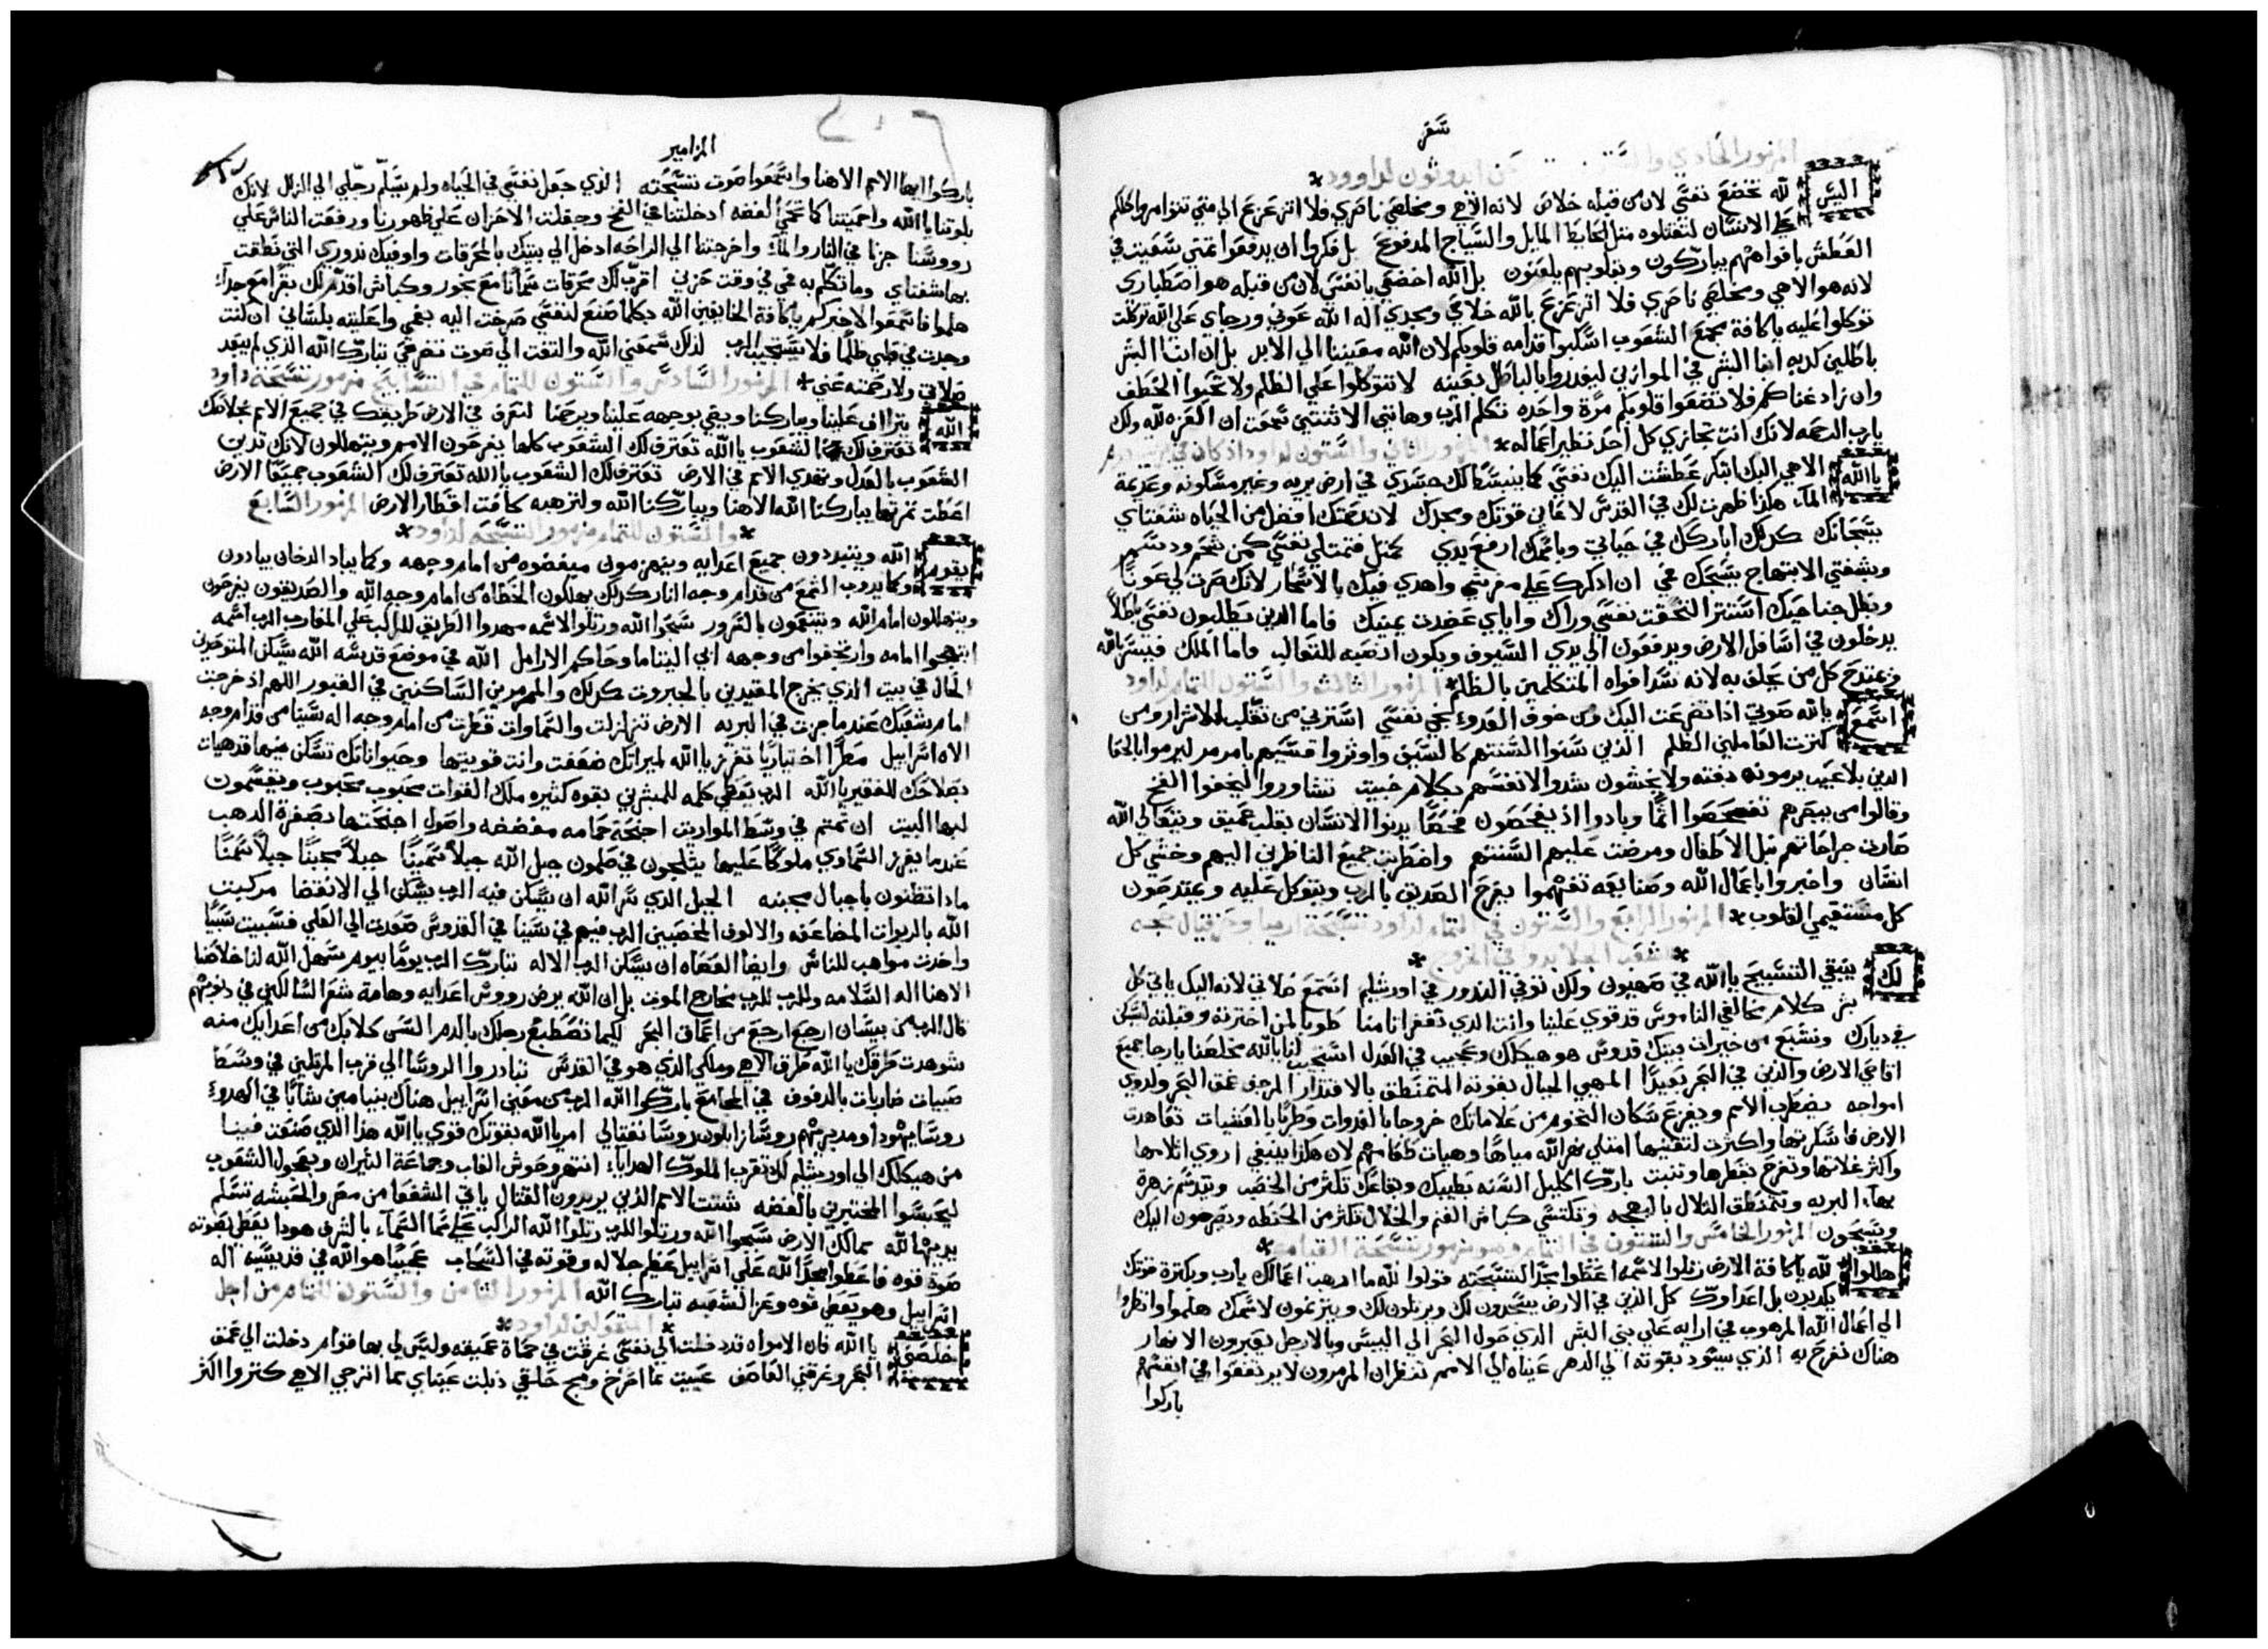 سفر
المزمور الحادي والستون عن ايدوثون لداوود*
اليس لله تخضع نفسي لان من قبله خلاص لانه الاهي ومخلصي ناصري فلا اتزعزع الي متي تتوامروا كلكم
علي الانسان لتقتلوه مثل الحايط المايل والسياج المدفوع بل فكروا ان يدفعوا ثمني سعيت في
العطش بافواههم يباركون وبقلوبهم يلعنون بل الله اخضعي يا نفسي لان من قبله هو اصطباري
لانه هو الاهي ومخلصي ناصري فلا اتزعزع بالله خلاصي ومجدي اله الله عوني ورجاي علي الله توكلت
توكلوا عليه يا كافة مجمع الشعوب اسكبوا قدامه قلوبكم لان الله معيننا الي الابد بل ان ابنا البشر
باطلين كدبه ابنا البشر في الموازين ليغدروا بالباطل بعينه لا تتوكلوا علي الظلم ولا تحبوا الخطف
وان زاد غناكم فلا تضعوا قلوبكم مرة واحده تكلم الرب وهاتين الاثنتين سمعت ان العزه لله ولك
يا رب الرحمه لانك انت تجازي كل احد نظير اعماله* المزمور الثاني والستون لداود اذ كان في
يا الله الاهي اليك ابتكر عطشت اليك نفسي كما يتبسط لك جسدي في ارض بريه وغير مسكونه وعديمة
الماء هكذا ظهرت لك في القدس لاعاين قوتك ومجدك لان رحمتك افضل من الحياه شفتاي
يسبحانك كدلك اباركك في حياتي وباسمك ارفع يدي فتمتلي نفسي كمن شحم ودسم
وبشفتي الابتهاج يسبحك فمي ان ادكرك علي مفرشي واهدي فيك بالاسحار لانك صرت لي عونا
وبظل جناحيك استتر التحقت نفسي وراك واياي عضدت يمينك فاما الدين يطلبون نفسي باطلا
يدخلون في اسافل الارض ويدفعون الي يدي السيوف ويكون انصبه للثعالب واما الملك فيسر بالله
ويمتدح كل من يحلف به لانه سد افواه المتكلمين بالظلم* المزمور الثالث والستون للتمام لداود
استمع يا الله صوتي اذا تضرعت اليك ومن خوف العدو نجي نفسي استرني من تقلب الاشرار ومن
كثرت العاملين الظلم الذين سنوا السنتهم كالسيف واوتروا قسيهم بامر مر ليرموا بالخفا
الدين بلا عيب يرمونه دفته ولا يخشون شدوا لانفسهم بكلام خبيت تشاوروا ليخفوا الفخ
وقالوا من يبصرهم تفحصوا اثما وبادوا اذ يفحصون فحصا يدنوا الانسان بقلب عميق ويتعالي الله
صارت جراحاتهم نبل الاطفال ومرضت عليهم السنتهم واضطربت جميع الناظرين اليهم وخشي كل
انسان واخبروا باعمال الله وصنايعه تفهموا يفرح الصديق بالرب ويتوكل عليه ويمتدحون
كل مستقيمي القلوب* المزمور الرابع والستون في التمام لداود تسبحة ارميا وحزقيال
شعب الجلا بدوا في الخروج*
لك ينبغي التسبيح يا الله في صهيون ولك توفي الندور في اورشليم استمع صلاتي لانه اليك ياتي كل
بشر كلام مخالفي الناموس قد قوي علينا وانت الدي تغفر اتامنا طوبا لمن اخترته وقبلته ليسكن
في ديارك ونشبع من خيرات بيتك قدوس هو هيكلك وعجيب في العدل استجب لنا يا الله مخلصنا يا رجا جميع
اقاصي الارض والذين في البحر بعيدا المهيي الجبال بقوته المتمنطق بالاقتدار المرجف عمق البحر ولدوي
امواجه يضطرب الامم ويفزع سكان التخوم من علاماتك خروجا بالغدوات وطربا بالعشيات تعاهدت
الارض فاسكرتها واكثرت لتغنيها امتلي نهر الله مياها وهيات طعامهم لان هكذا ينبغي اروي اتلامها
واكثر غلاتها وتفرح بقطرها وتنبت بارك اكليل السنه بطيبك وبقاعك تكثر من الخصب وتدسم زهرة
بهاء البريه وتتمنطق التلال بالبهجه وتكتسي كباش الغنم والخلال تكثر من الحنطه ويصرخون اليك
ويسبحون المزمور الخامس والستون في التمام وهو مزمور تسبحة القيامه*
هللوا لله يا كافة الارض رتلوا لاسمه اعطوا مجدا لتسبحته قولوا لله ما ارهب اعمالك يا رب وبكثرة قوتك
يكدبون بل اعداوك كل الدين في الارض يسجدون لك ويرتلون لك ويترنمون لاسمك هلموا وانظروا
الي اعمال الله المرهوب في ارايه علي بني البشر الدي حول البحر الي اليبس وبالارجل يعبرون الانهار
هناك نفرح به الذي يسود بقوته الي الدهر عيناه الي الامم تنظران المرمرون لا يرتفعوا في انفسهم
باركوا
المزامير
باركوا ايها الامم الاهنا واسمعوا صوت تسبحته الذي جعل نفسي في الحياه ولم يسلم رجلي الي الزلل لانك
بلوتنا يا الله واحميتنا كما تحمي الفضه ادخلتنا في الفخ وجعلت الاحزان علي ظهورنا ورفعت الناس علي
رووسنا جزنا في النار والماء واخرجتنا الي الراحه ادخل الي بيتك بالمحرقات واوفيك ندوري التي نطقت
بها شفتاي وما تكلم به فمي في وقت حزني اقرب لك محرقات سمانا مع بخور وكباش اقدم لك بقرا مع جداء
هلموا فاسمعوا لاخبركم يا كافة الخايفين الله بكلما صنع لنفسي صرخت اليه بفمي واعليته بلساني ان كنت
وجدت في قلبي ظلما فلا يستجيب الرب لذلك سمعني الله والتفت الي صوت تضرعي تبارك الله الذي لم يبعد
صلاتي ولا رحمته عني* المزمور السادس والستون للتمام في التسابيح مزمور تسبحة داود
الله يتراف علينا ويباركنا ويضي بوجهه علينا ويرحمنا لنعرف في الارض طريقك في جميع الامم خلاصك
تعترف لك الشعوب يا الله تعترف لك الشعوب كلها يفرحون الامم ويتهللون لانك تدين
الشعوب بالعدل وتهدي الامم في الارض تعترف لك الشعوب يا الله تعترف لك الشعوب جميعا الارض
اعطت ثمرتها يباركنا الله الاهنا ويباركنا الله ولترهبه كافت اقطار الارض المزمور السابع
*والستون للتمام مزمور التسبحه لداود*
يقوم الله ويتبددون جميع اعدايه وينهزمون مبغضوه من امام وجهه وكما يباد الدخان يبادون
وكما يدوب الشمع من قدام وجه النار كدلك يهلكون الخطاه من امام وجه الله والصديقون يفرحون
ويتهللون امام الله ويتنعمون بالسرور سبحوا الله ورتلوا لاسمه مهدوا الطريق للراكب علي المغارب الرب اسمه
ابتهجوا امامه وارتجفوا من وجهه ابي اليتاما وحاكم الارامل الله في موضع قدسه الله يسكن المتوحدين
الحال في بيت الذي يخرج المقيدين بالجبروت كدلك والمرمرين الساكنين في القبور اللهم اذ خرجت
امام شعبك عندما جزت في البريه الارض تزلزلت والسماوات قطرت من امام وجه اله سينا من قدام وجه
الاه اسراييل مطرا اختياريا تفرز يا الله لميراتك ضعفت وانت قويتها وحيواناتك تسكن فيها قد هيات
بصلاحك للفقير يا الله الرب يعطي كلمه للمبشرين بقوه كثيره ملك القوات محبوب محبوب ويقسمون
لبها البيت ان نمتم في وسط المواريت اجنحة حمامه مفضضه واصول اجنحتها بصفرة الدهب
عندما يفرز السماوي ملوكا عليها يثلجون في صلمون جبل الله جبلا سمينا جبلا مجبنا جبلا سمينا
مادا تظنون يا جبال مجبنه الجبل الذي سر الله ان يسكن فيه الرب يسكن الي الانقضا مركبت
الله بالربوات المضاعفه والالوف المخصبين الرب فيهم في سينا في القدوس صعدت الي العلي فسبيت سبيا
واخدت مواهب للناس وايضا العصاه ان يسكن الرب الاله تبارك الرب يوما بيوم يسهل الله لنا خلاصنا
الاهنا اله السلامه وللرب للرب مخارج الموت بل ان الله يرض رووس اعدايه وهامة شعر السالكين في دنوبهم
قال الرب من بيسان ارجع ارجع من اعماق البحر لكيما تصطبغ رجلك بالدم السن كلابك من اعدايك منه
شوهدت طرقك يا الله طرق الاهي وملكي الدي هو في القدس تبادروا الروسا الي قرب المرتلين في وسط
صبيات ضاربات بالدفوف في المجامع باركوا الله الرب من معين اسراييل هناك بنيامين شابا في الهدوء
روسا يهودا ومدبريهم روسا زابلون روسا نفتالي امر يا الله بقوتك قوي يا الله هذا الذي صنعت فينا
من هيكلك الي اورشليم لك تقرب الملوك الهدايا انتهر وحوش الغاب وجماعة الثيران وعجول الشعوب
ليحبسوا المختبرين بالفضه شتت الامم الذين يريدون القتال ياتي الشفعا من مصر والحبشه تسلم
يديها لله ممالك الارض سبحوا الله ورتلوا للرب رتلوا الله الراكب علي سما السماء بالشرق هودا يعطي بصوته
صوة قوه فاعطوا مجدا لله علي اسراييل عظم جلاله وقوته في السحاب عجيبا هو الله في قديسيه اله
اسراييل وهو يعطي قوه وعزا لشعبه تبارك الله المزمور الثامن والستون للتمام من اجل
المتغولين لداود*
خلصني يا الله فان الامواه قد دخلت الي نفسي غرقت في حماة عميقه وليس لي بها قوام دخلت الي عمق
البحر وغرقني العاصف عييت مما اصرخ وبح حلقي دبلت عيناي مما اترجي الاهي كتروا اكثر